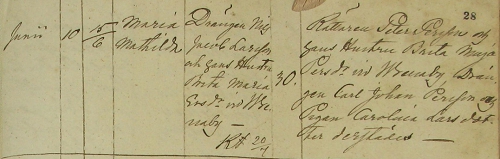 28
Junii 10 15/6 Maria Mathilda
Drängen Nils
Jacob Larsson
och hans Hustru
Brita Maria
30.
Rättaren Peter Persson och
hans Hustru Brita Maja
Persdr, Drän
gen Carl Johan Persson och
Pigan Carolina Lars dot
ter derstädes —